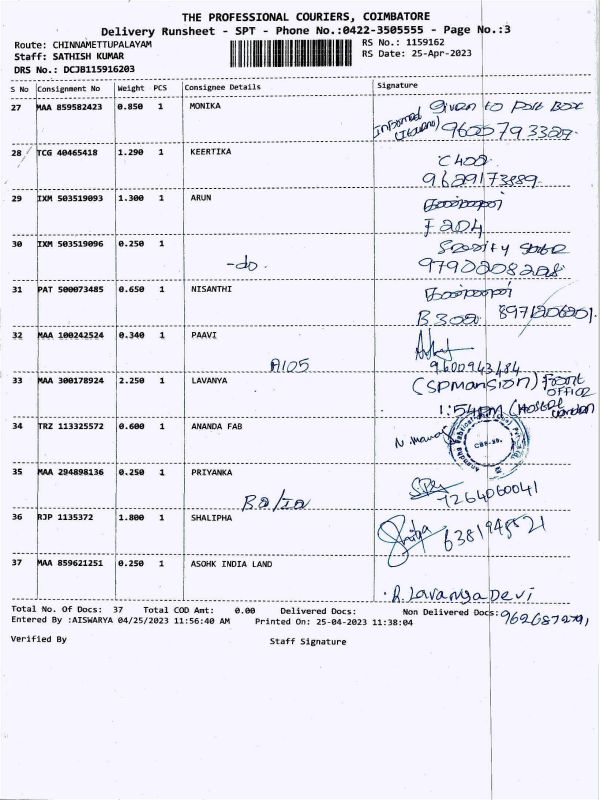 THE PROFESSIONAL COURIERS, COIMBATORE
Delivery Runsheet - SPT - Phone No.:0422-3505555 - Page No.:3
Route: CHINNAMETTUPALAYAM
RS No.: 1159162
Staff: SATHISH KUMAR
RS Date: 25-Apr-2023
DRS No.: DCJB115916203
S No Consignment No Weight PCS Consignee Details Signature
27 MAA 859582423 0.850 1 MONIKA
Informed Given to Post Box
28 TCG 40465418 1.290 1 KEERTIKA
C402
29 IXM 503519093 1.300 1 ARUN
F204
30 IXM 503519096 0.250 1
-do.
31 PAT 500073485 0.650 1 NISANTHI
B302
32 MAA 100242524 0.340 1 PAAVI
A105
33 MAA 300178924 2.250 1 LAVANYA
(SPMANSION) Front OFFICE
1:54PM (HOSTEL
34 TRZ 113325572 0.600 1 ANANDA FAB
35 MAA 294898136 0.250 1 PRIYANKA
7264060041
36 RJP 1135372 1.800 1 SHALIPHA
37 MAA 859621251 0.250 1 ASOHK INDIA LAND
R. Lavanya Devi
Total No. Of Docs: 37 Total COD Amt: 0.00 Delivered Docs: Non Delivered Docs:
Entered By :AISWARYA 04/25/2023 11:56:40 AM Printed On: 25-04-2023 11:38:04
Verified By Staff Signature